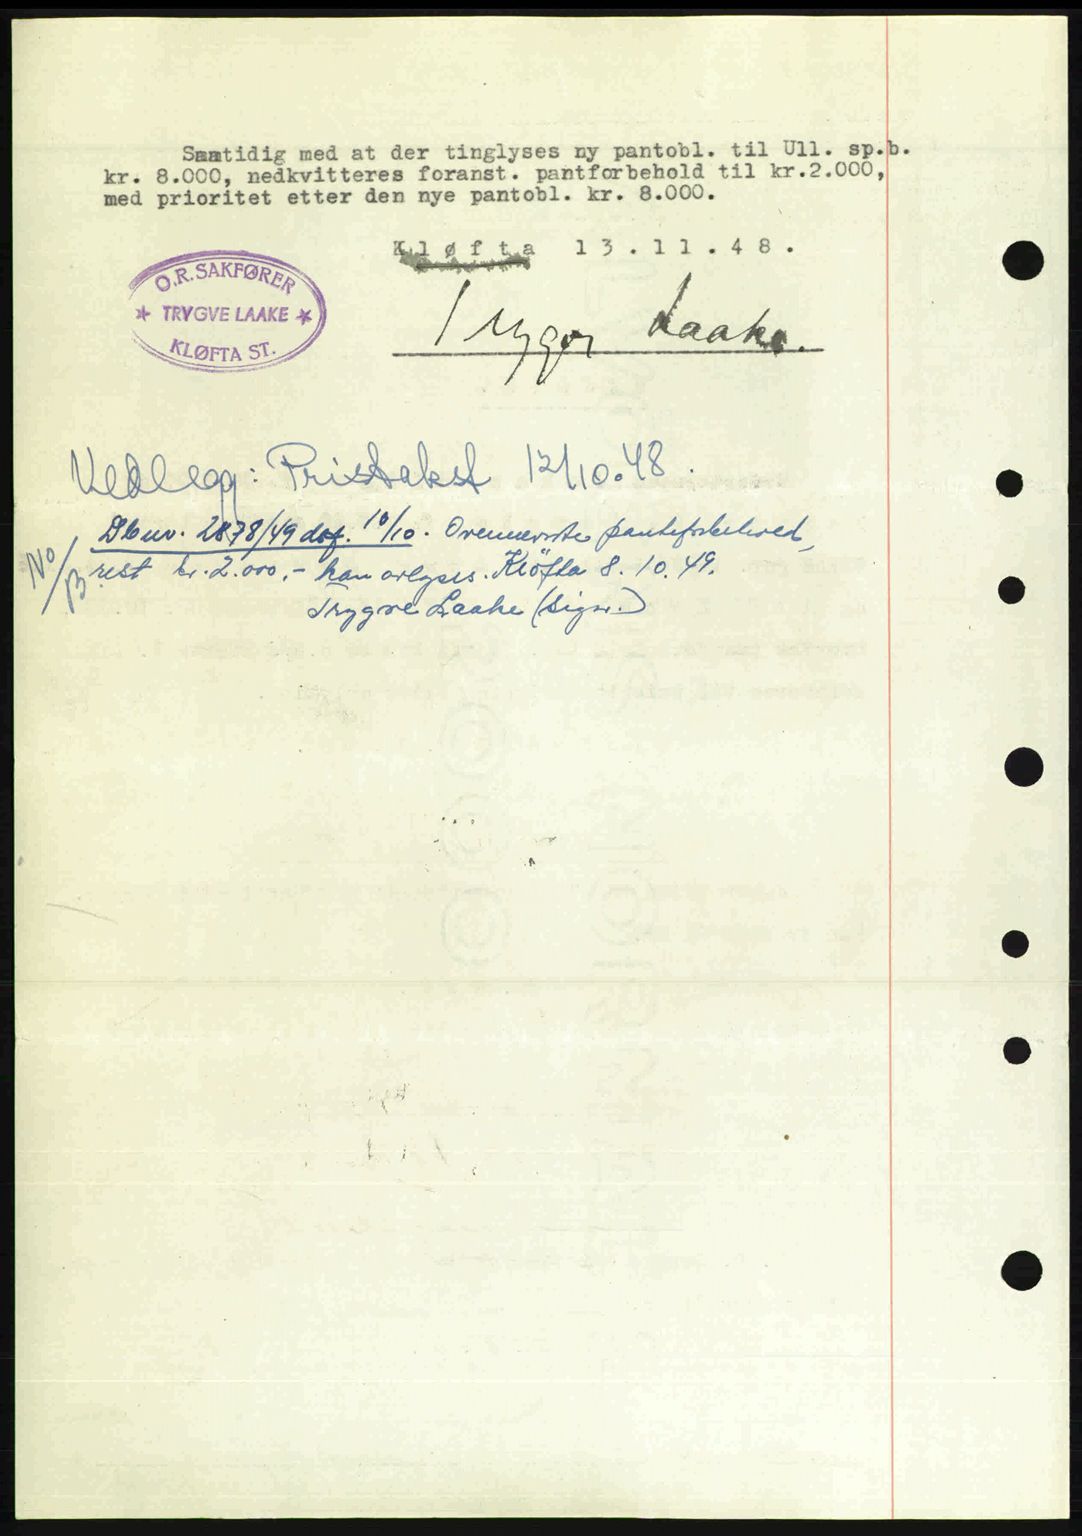 Samtidig med at der tinglyses ny pantobl. til Ull. sp.b.
kr. 8.000, nedkvitteres foranst. pantforbehold til kr.2.000,
med prioritet etter den nye pantobl. kr. 8.000.
Kløfta 13.11.48.
O.R. SAKFØRER
* TRYGVE LAAKE *
KLØFTA ST.
Trygve Laake.
Vedlegg: Pristakst 12/10.48.
Dbnr. 2878/49 dof. 10/10. Ovennevnte panteforbehold,
rest kr. 2.000,- kan avlyses. Kløfta 8. 10. 49.
Trygve Laake (sign.)